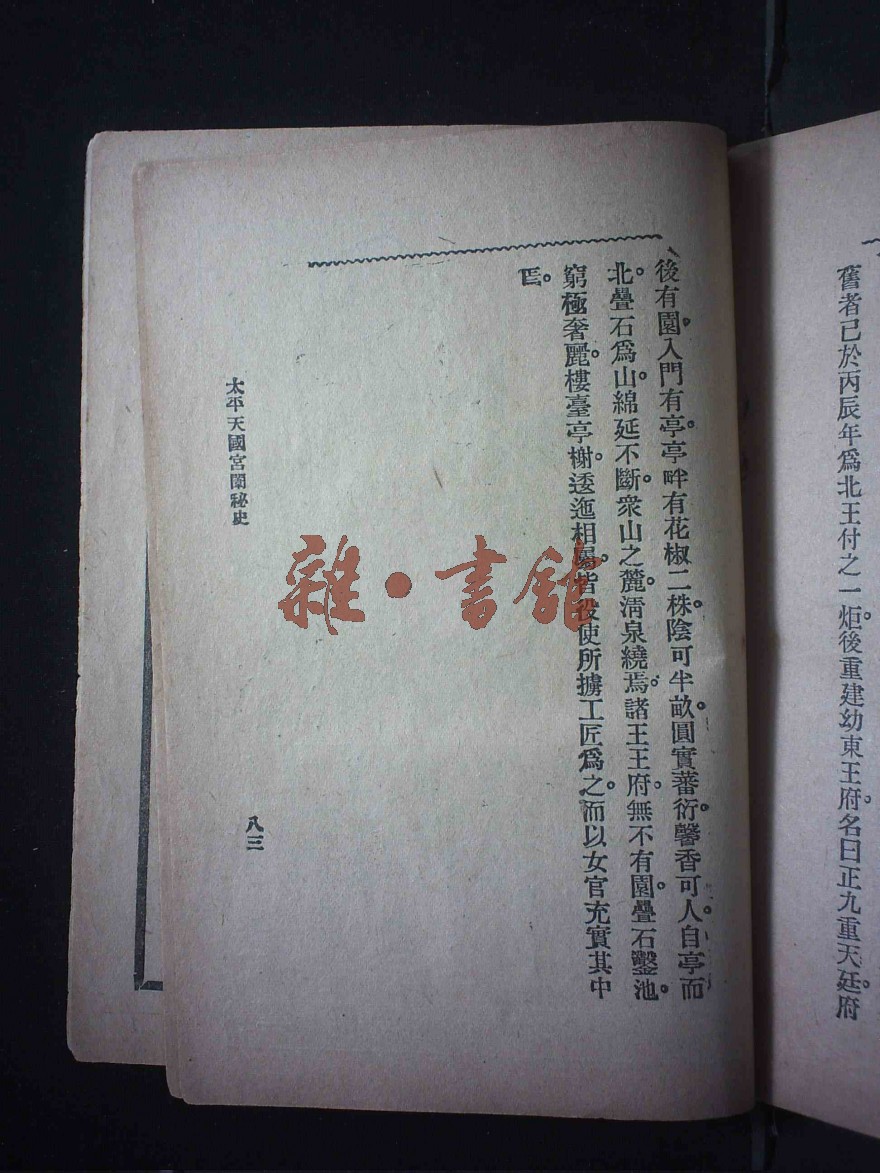 舊者已於丙辰年爲北王付之一炬。後重建幼東王府。名曰正九重天廷府。
後有園。入門有亭。亭畔有花椒二株。陰可半畝。圓實蕃衍。馨香可人。自亭而
北。疊石爲山。綿延不斷。衆山之麓。淸泉繞焉。諸王王府。無不有園。疊石鑿池。
窮極奢麗。樓臺亭榭。逶迤相屬。皆役使所擄工匠爲之。而以女官充實其中
焉。
太平天國宮闈秘史
八三
雜·書館